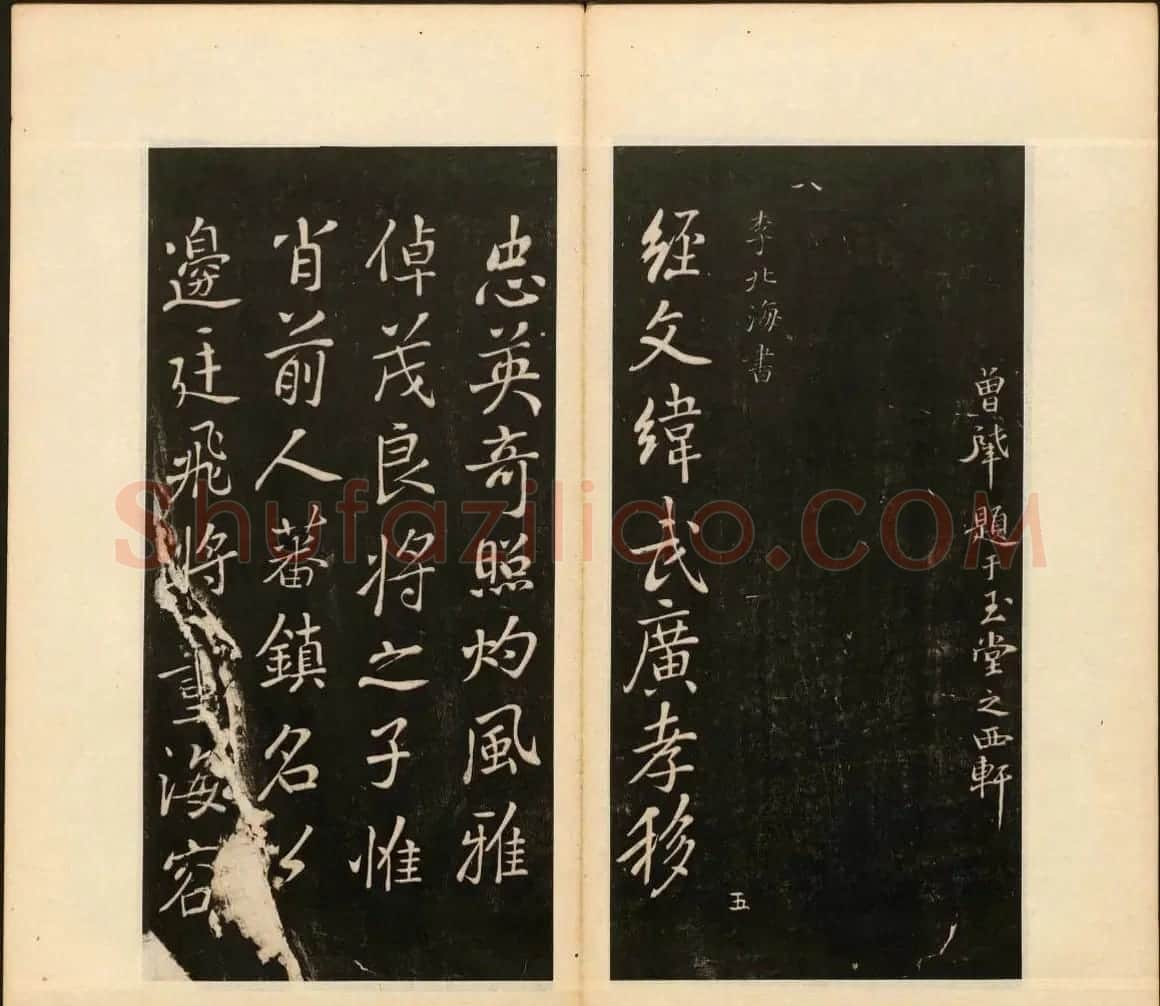 曾肇題于玉堂之西軒
八
李北海書
五
經文緯武廣孝移
忠英奇照灼風雅
倬茂良將之子惟
肖前人蕃鎮名公
邊廷飛將 重海容
Shufaziliao.COM